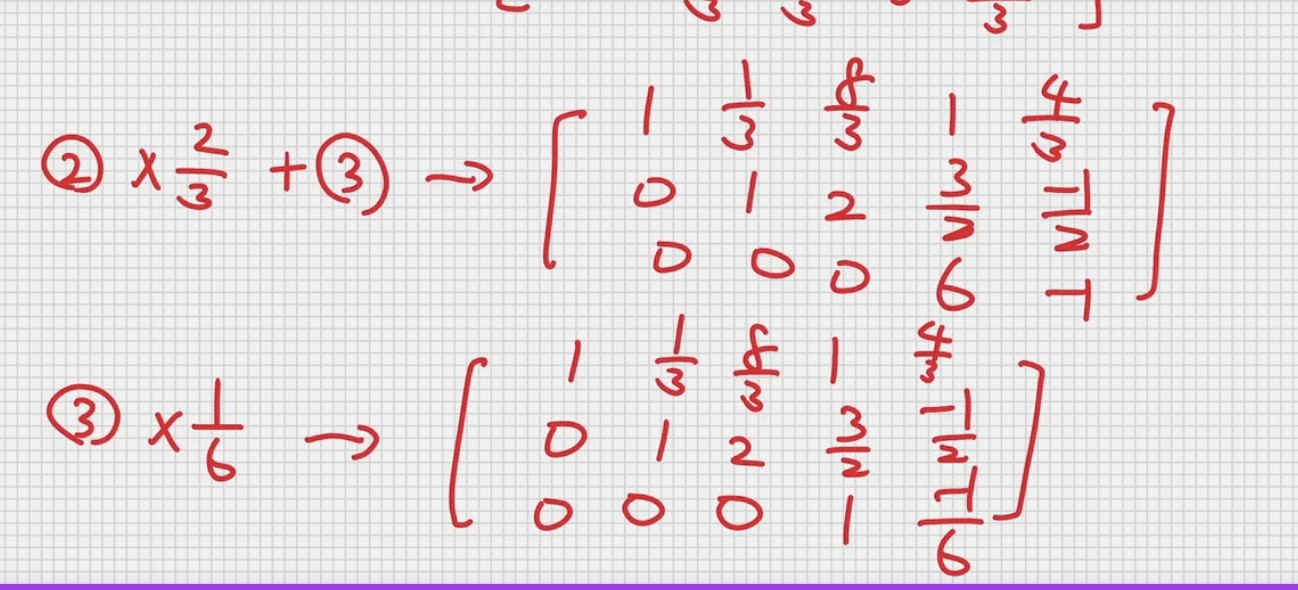 ② × 2/3 + ③ → [ 1 1/3 8/3 1 4/3
0 1 2 3/2 -1/2
0 0 0 6 -1 ]
③ × 1/6 → [ 1 1/3 8/3 1 4/3
0 1 2 3/2 -1/2
0 0 0 1 -1/6 ]